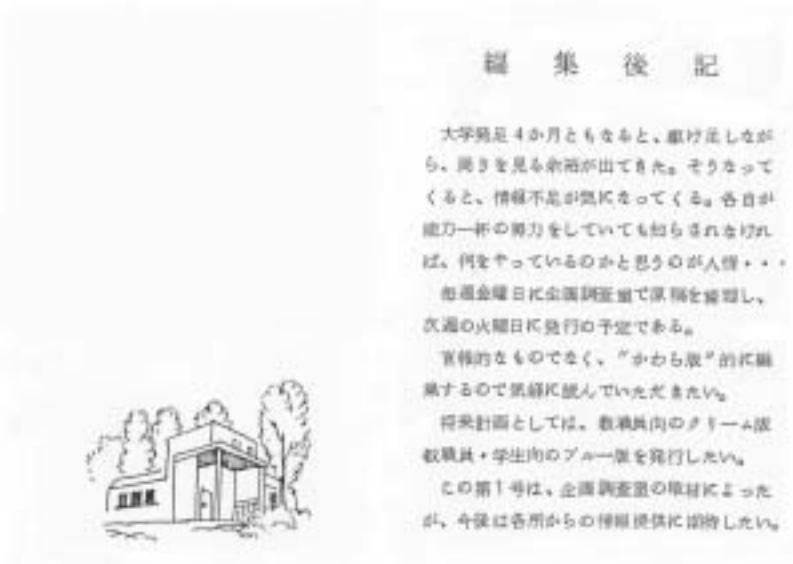 編集後記
大学発足4か月ともなると、駆け足しなが
ら、周りを見る余裕が出てきた。そうなって
くると、情報不足が気になってくる。各自が
能力一杯の努力をしていても知らされなけれ
ば、何をやっているのかと思うのが人情・・・
毎週金曜日に企画調査室で原稿を締切し、
次週の火曜日に発行の予定である。
官報的なものでなく、"かわら版"的に編
集するので気軽に読んでいただきたい。
将来計画としては、教職員向のクリーム版
教職員・学生向のブルー版を発行したい。
この第1号は、企画調査室の取材によった
が、今後は各所からの情報提供に期待したい。